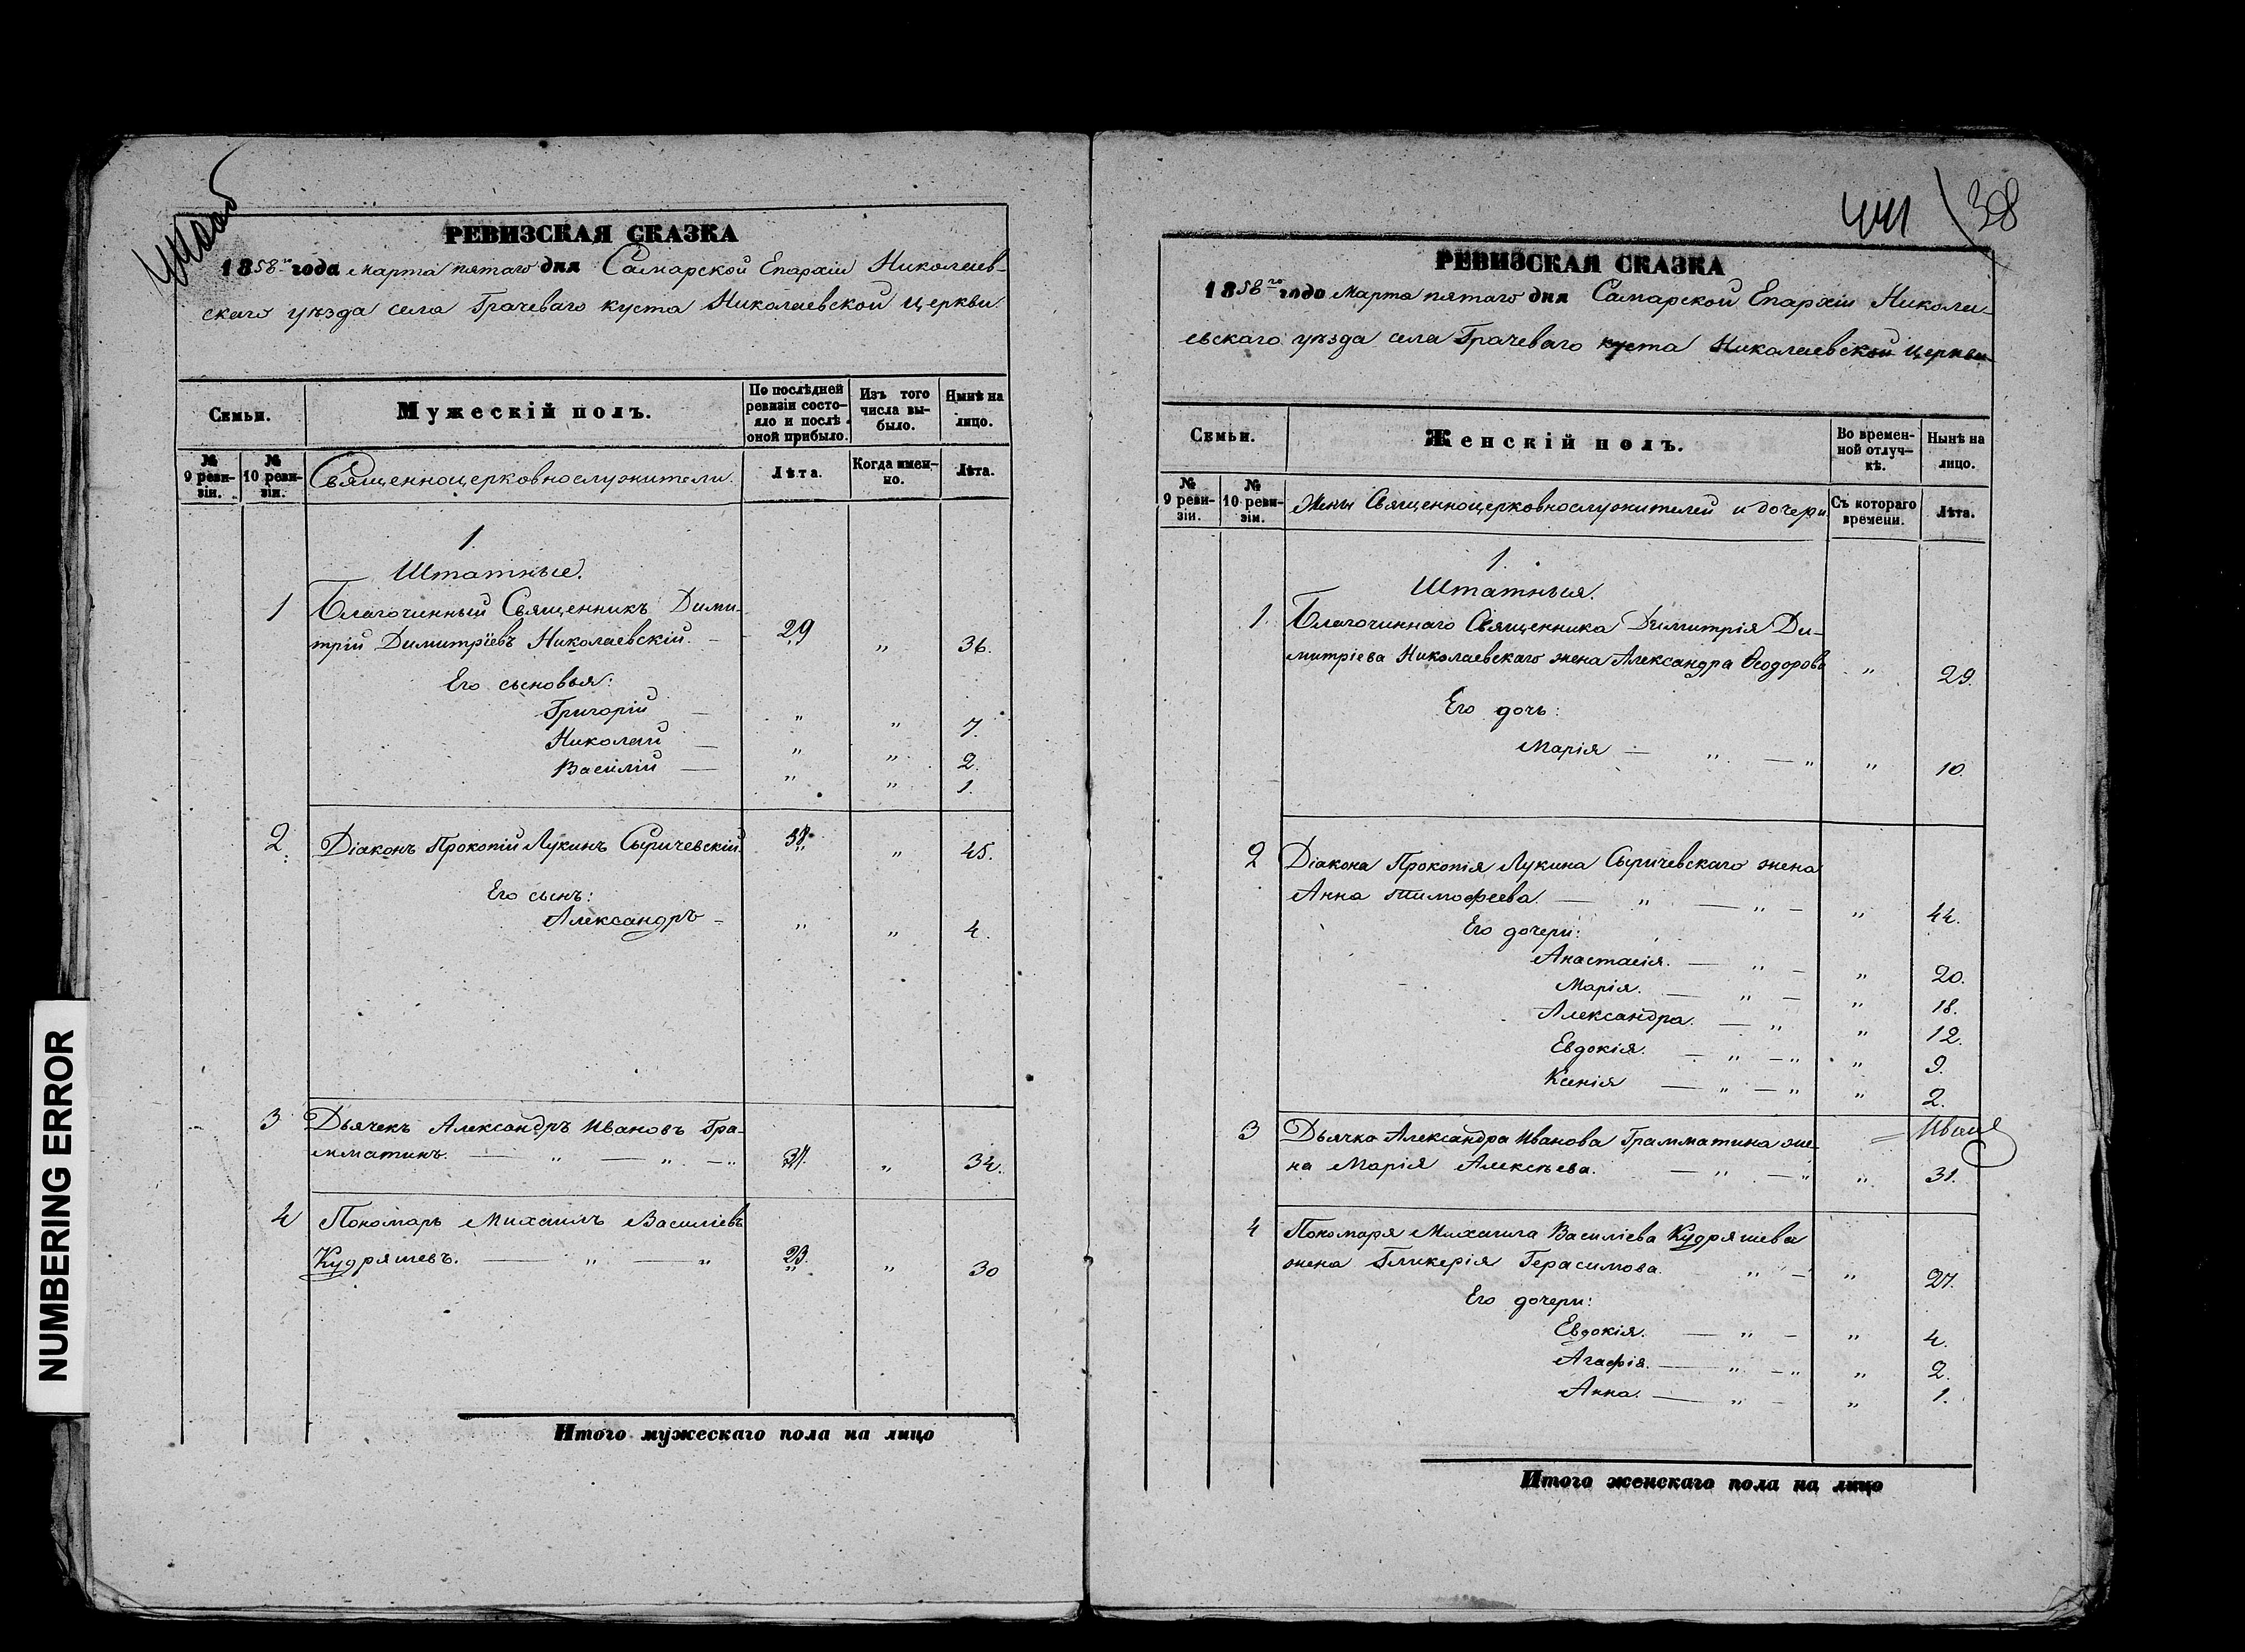 NUMBERING ERROR
РЕВИЗСКАЯ СКАЗКА
1858го года Марта пятаго дня Самарской Епархіи Николаев-
скаго уѣзда села Грачеваго куста Николаевской церкви
Семьи.
Мужескій полъ.
По послѣдней ревизіи состояло и послѣ оной прибыло.
Изъ того числа выбыло.
Нынѣ на лицо.
№ 9 ревизіи.
№ 10 ревизіи.
Священноцерковнослужители.
Лѣта.
Когда именно.
Лѣта.
1.
Штатные.
1 Благочинный Священникъ Дими-
трій Димитріевъ Николаевскій. — 29 „ 36.
Его сыновья:
Григорій — „ „ 7.
Николай — „ „ 2.
Василій — „ „ 1.
2. Діаконъ Прокопій Лукинъ Сыричевскій. „ 45.
Его сынъ:
Александръ – „ „ 4.
3 Дьячекъ Александръ Ивановъ Гра-
мматинъ. — „ — „ — „ „ 34.
4 Пономарь Михаилъ Василіевъ
Кудряшевъ. — „ — „ 23. „ 30
Итого мужескаго пола на лицо
441 38
РЕВИЗСКАЯ СКАЗКА
1858го года Марта пятаго дня Самарской Епархіи Никола-
евскаго уѣзда села Грачеваго куста Николаевской церкви
Семьи.
Женскій полъ.
Во временной отлучкѣ.
Нынѣ на лицо.
№ 9 ревизіи.
№ 10 ревизіи.
Жены Священноцерковнослужителей и дочери
Съ котораго времени.
Лѣта.
1.
Штатныя.
1. Благочиннаго Священника Димитрія Ди-
митріева Николаевскаго жена Александра Ѳеодорова „ 29.
Его дочь:
Марія — „ — „ „ 10.
2 Діакона Прокопія Лукина Сыричевскаго жена
Анна Тимофеева. — „ — „ – „ 44.
Его дочери:
Анастасія. — „ – „ 20.
Марія. — „ – „ 18.
Александра. — „ „ 12.
Евдокія. — „ – „ „ 9.
Ксенія — „ — „ „ 2.
3 Дьячка Александра Иванова Грамматина же-
на Марія Алексѣева. — „ — „ „ 31.
4 Пономаря Михаила Василіева Кудряшева
жена Гликерія Герасимова. „ – „ 27.
Его дочери:
Евдокія. — „ – „ 4.
Агафія. — „ – „ „ 2.
Анна. — „ – „ 1.
Итого женскаго пола на лицо